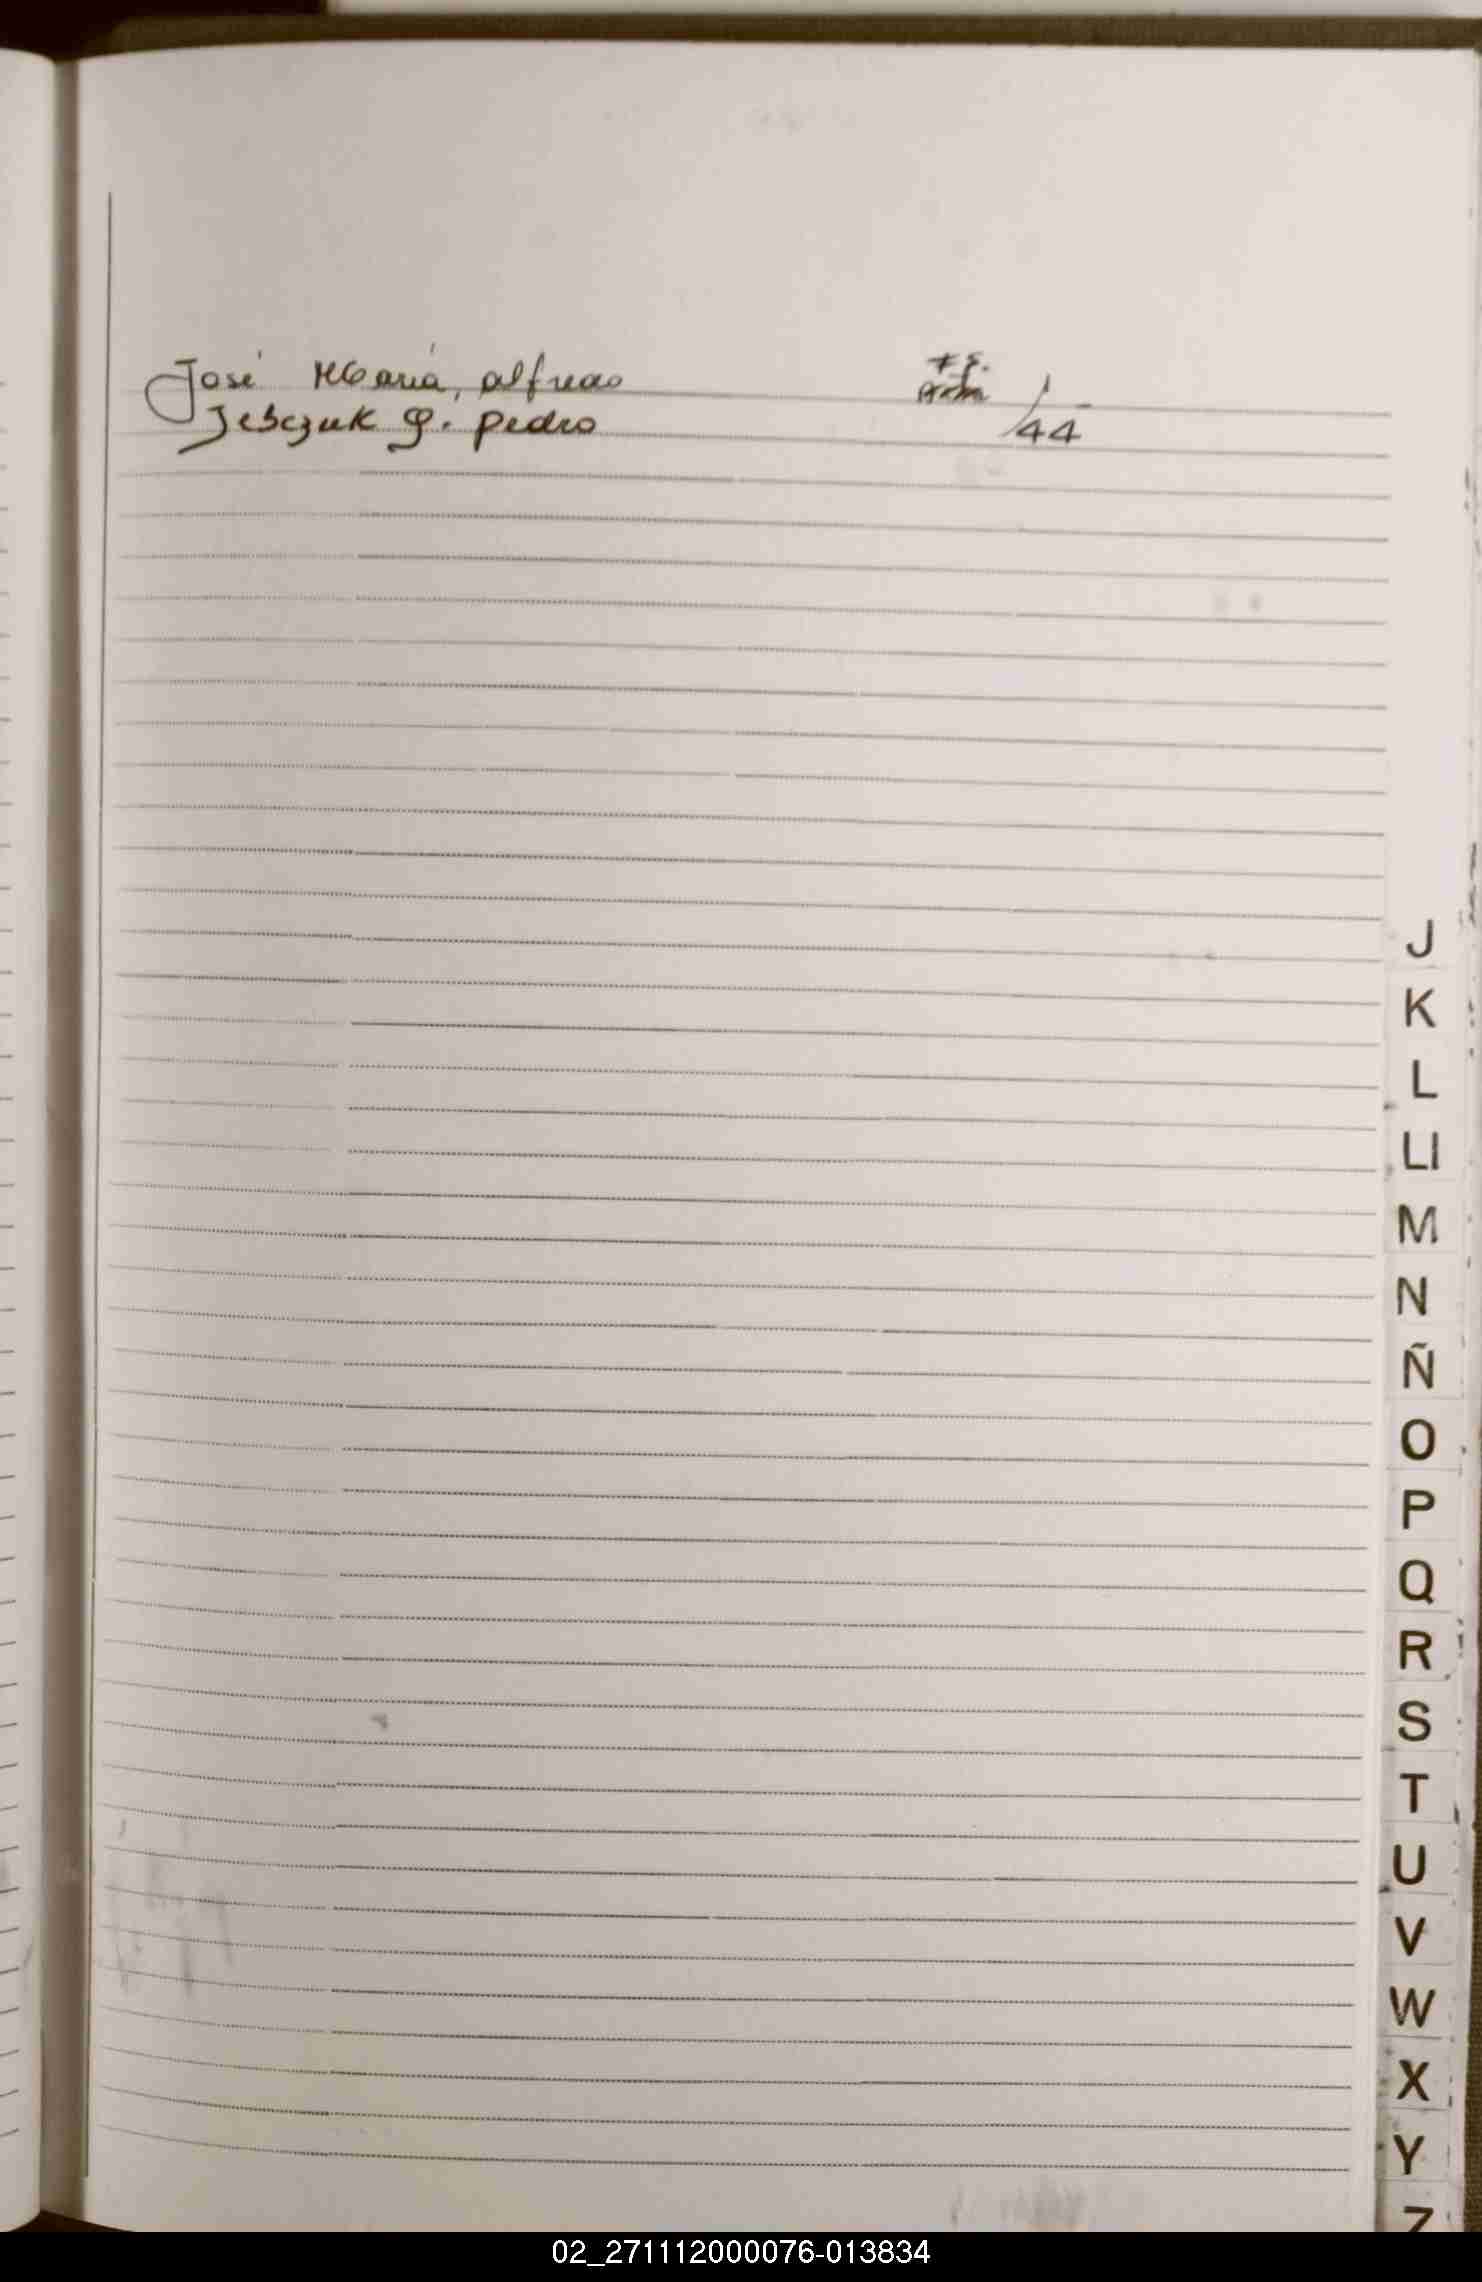 José María, alfredo
Jebczuk g. pedro
44
J
K
L
Ll
M
N
Ñ
O
P
Q
R
S
T
U
V
W
X
Y
Z
02_271112000076-013834